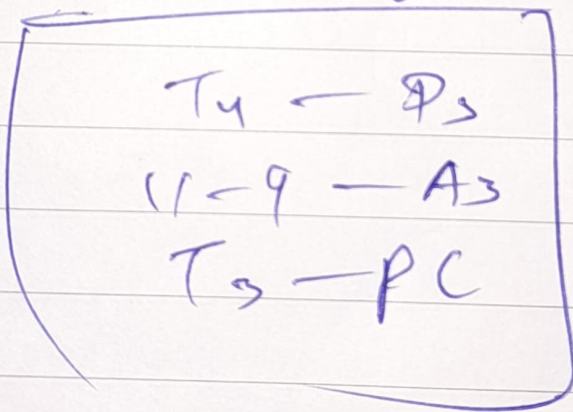 T4 — P3
11-9 — A3
T3 — PC